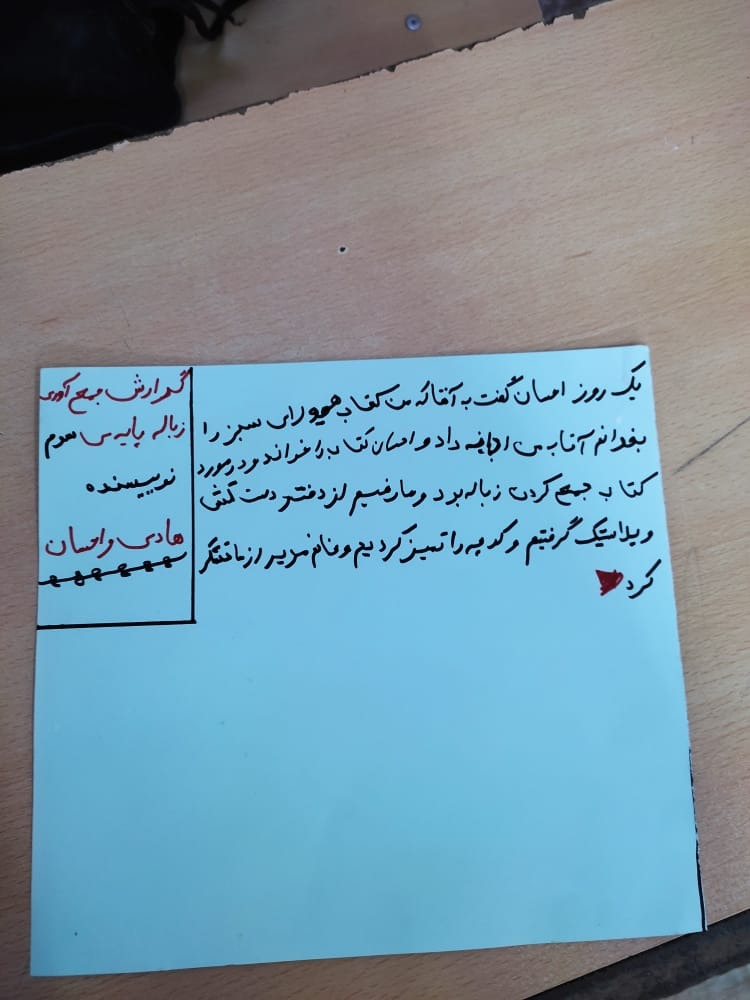 یک روز احسان گفت به آقا که من کتاب هیولای سبز را
بخوانم آقا به من اجازه داد و احسان کتاب را خواند و در مورد
کتاب جمع کردن زباله بود و ما رفتیم از دفتر دست کش
و پلاستیک گرفتیم و کوچه را تمیز کردیم و خانم مدیر از ما تشکر
کرد
گزارش جمع آوری
زباله پایه س سوم
نوییسنده
هادی و احسان